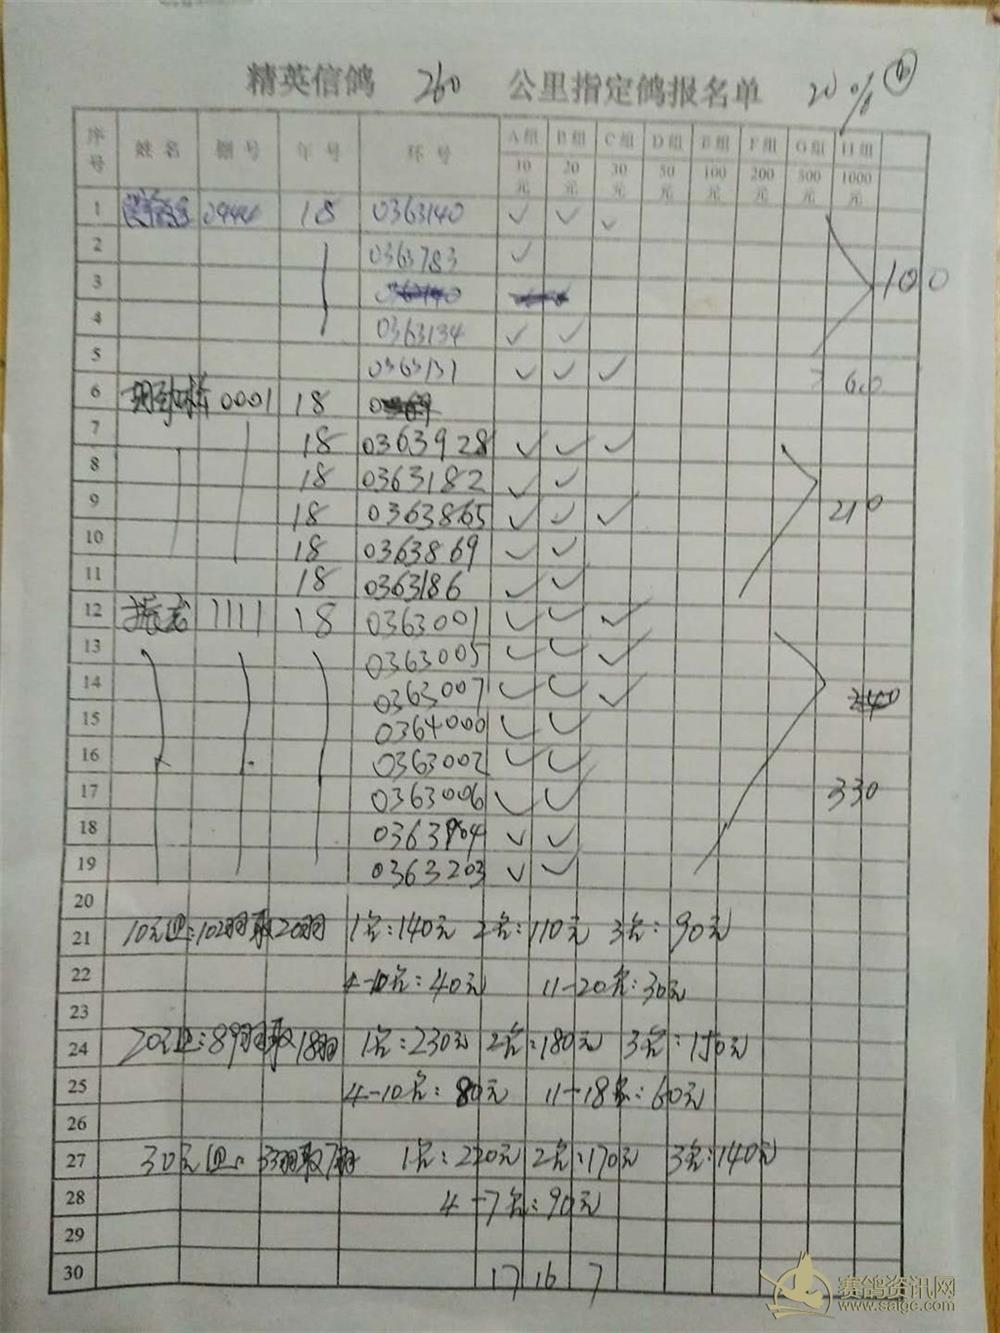 精英信鸽 260 公里指定鸽报名单 20% 6
序号 姓名 棚号 年号 环号 A组 B组 C组 D组 E组 F组 G组 H组
10元 20元 30元 50元 100元 200元 500元 1000元
1 0944 18 0363140 ✓ ✓ ✓
2 0363783 ✓
3
100
4 0363134 ✓ ✓
5 0363131 ✓ ✓ ✓ 60
6 0001 18
7 18 0363928 ✓ ✓ ✓
8 18 0363182 ✓ ✓
9 18 0363865 ✓ ✓ ✓ 210
10 18 0363869 ✓ ✓
11 18 0363186 ✓ ✓
12 1111 18 0363001 ✓ ✓ ✓
13 0363005 ✓ ✓ ✓
14 0363007 ✓ ✓ ✓
15 0364000 ✓ ✓
16 0363002 ✓ ✓
17 0363006 ✓ ✓ 330
18 0363904 ✓ ✓
19 0363203 ✓ ✓
20
21 10元组:102羽取20羽 1名:140元 2名:110元 3名:90元
22 4-10名:40元 11-20名:30元
23
24 20元组:89羽取18羽 1名:230元 2名:180元 3名:150元
25 4-10名:80元 11-18名:60元
26
27 30元组:33羽取7羽 1名:220元 2名:170元 3名:140元
28 4-7名:90元
29
30 17 16 7
赛鸽资讯网
www.saigc.com